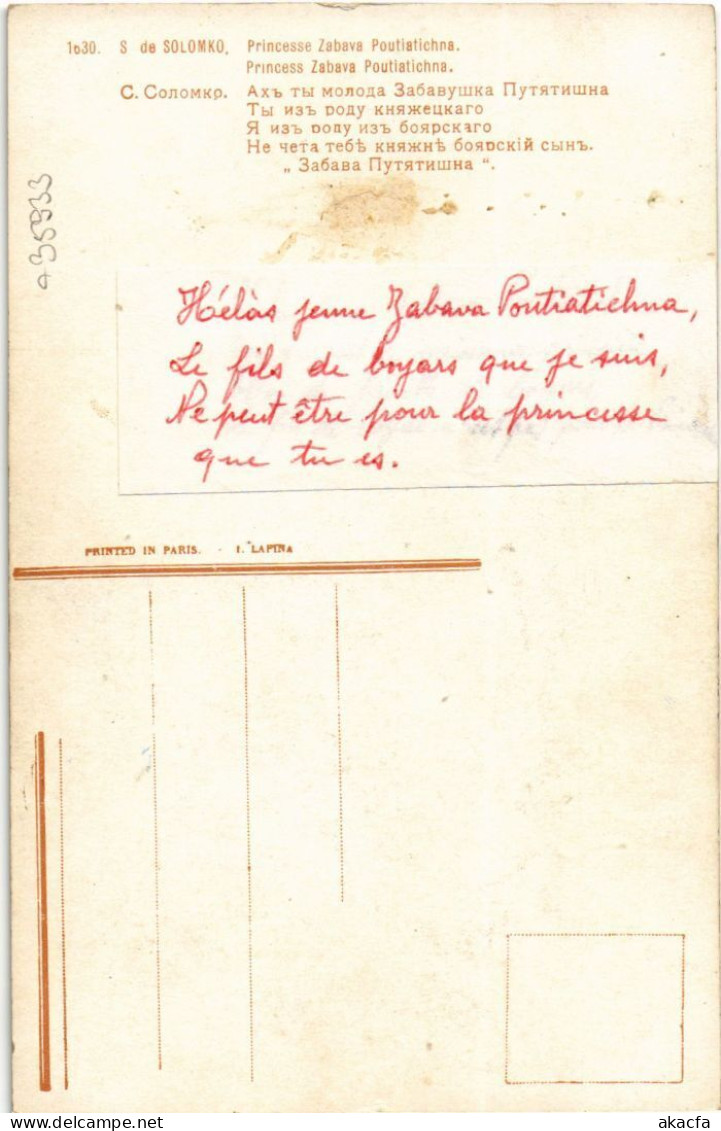 1030. S de SOLOMKO, Princesse Zabava Poutiatichna.
Princess Zabava Poutiatichna.
С. Соломко. Ахъ ты молода Забавушка Путятишна
Ты изъ роду княжецкаго
Я изъ роду изъ боярскаго
Не чета тебѣ княжнѣ боярскій сынъ.
„ Забава Путятишна “.
a35933
Hélàs jeune Zabava Poutiatichna,
Le fils de boyars que je suis,
Ne peut être pour la princesse
que tu es.
PRINTED IN PARIS. - I. LAPINA
delcampe.net
akacfa